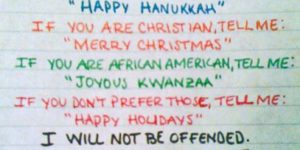 "HAPPY HANUKKAH"
IF YOU ARE CHRISTIAN, TELL ME:
"MERRY CHRISTMAS"
IF YOU ARE AFRICAN AMERICAN, TELL ME:
"JOYOUS KWANZAA"
IF YOU DON'T PREFER THOSE, TELL ME:
"HAPPY HOLIDAYS"
I WILL NOT BE OFFENDED.